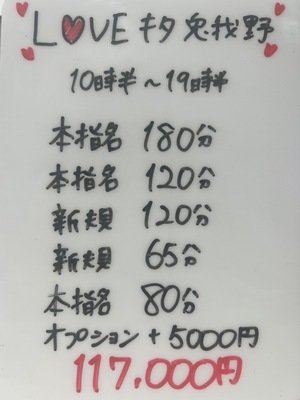 LOVE キタ兎我野
10時半～19時半
本指名 180分
本指名 120分
新規 120分
新規 65分
本指名 80分
オプション + 5000円
117.000円